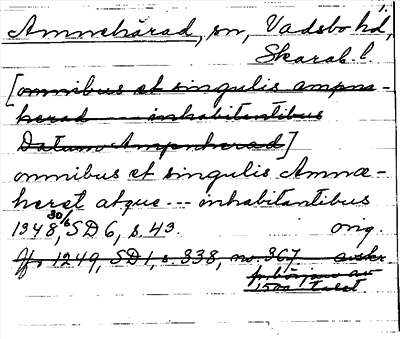 1.
Amnehärad, sn, Vadsbo hd,
Skarab. l.
[omnibus et singulis ampna-
herad --- inhabitantibus
Datum Ampnherad]
omnibus et singulis Amnæ-
heret atque --- inhabitantibus
1348 30/6, SD 6, s. 43. orig.
Jfr 1249, SD 1, s. 338, no. 367. avskr.
fr. början av
1500 talet.